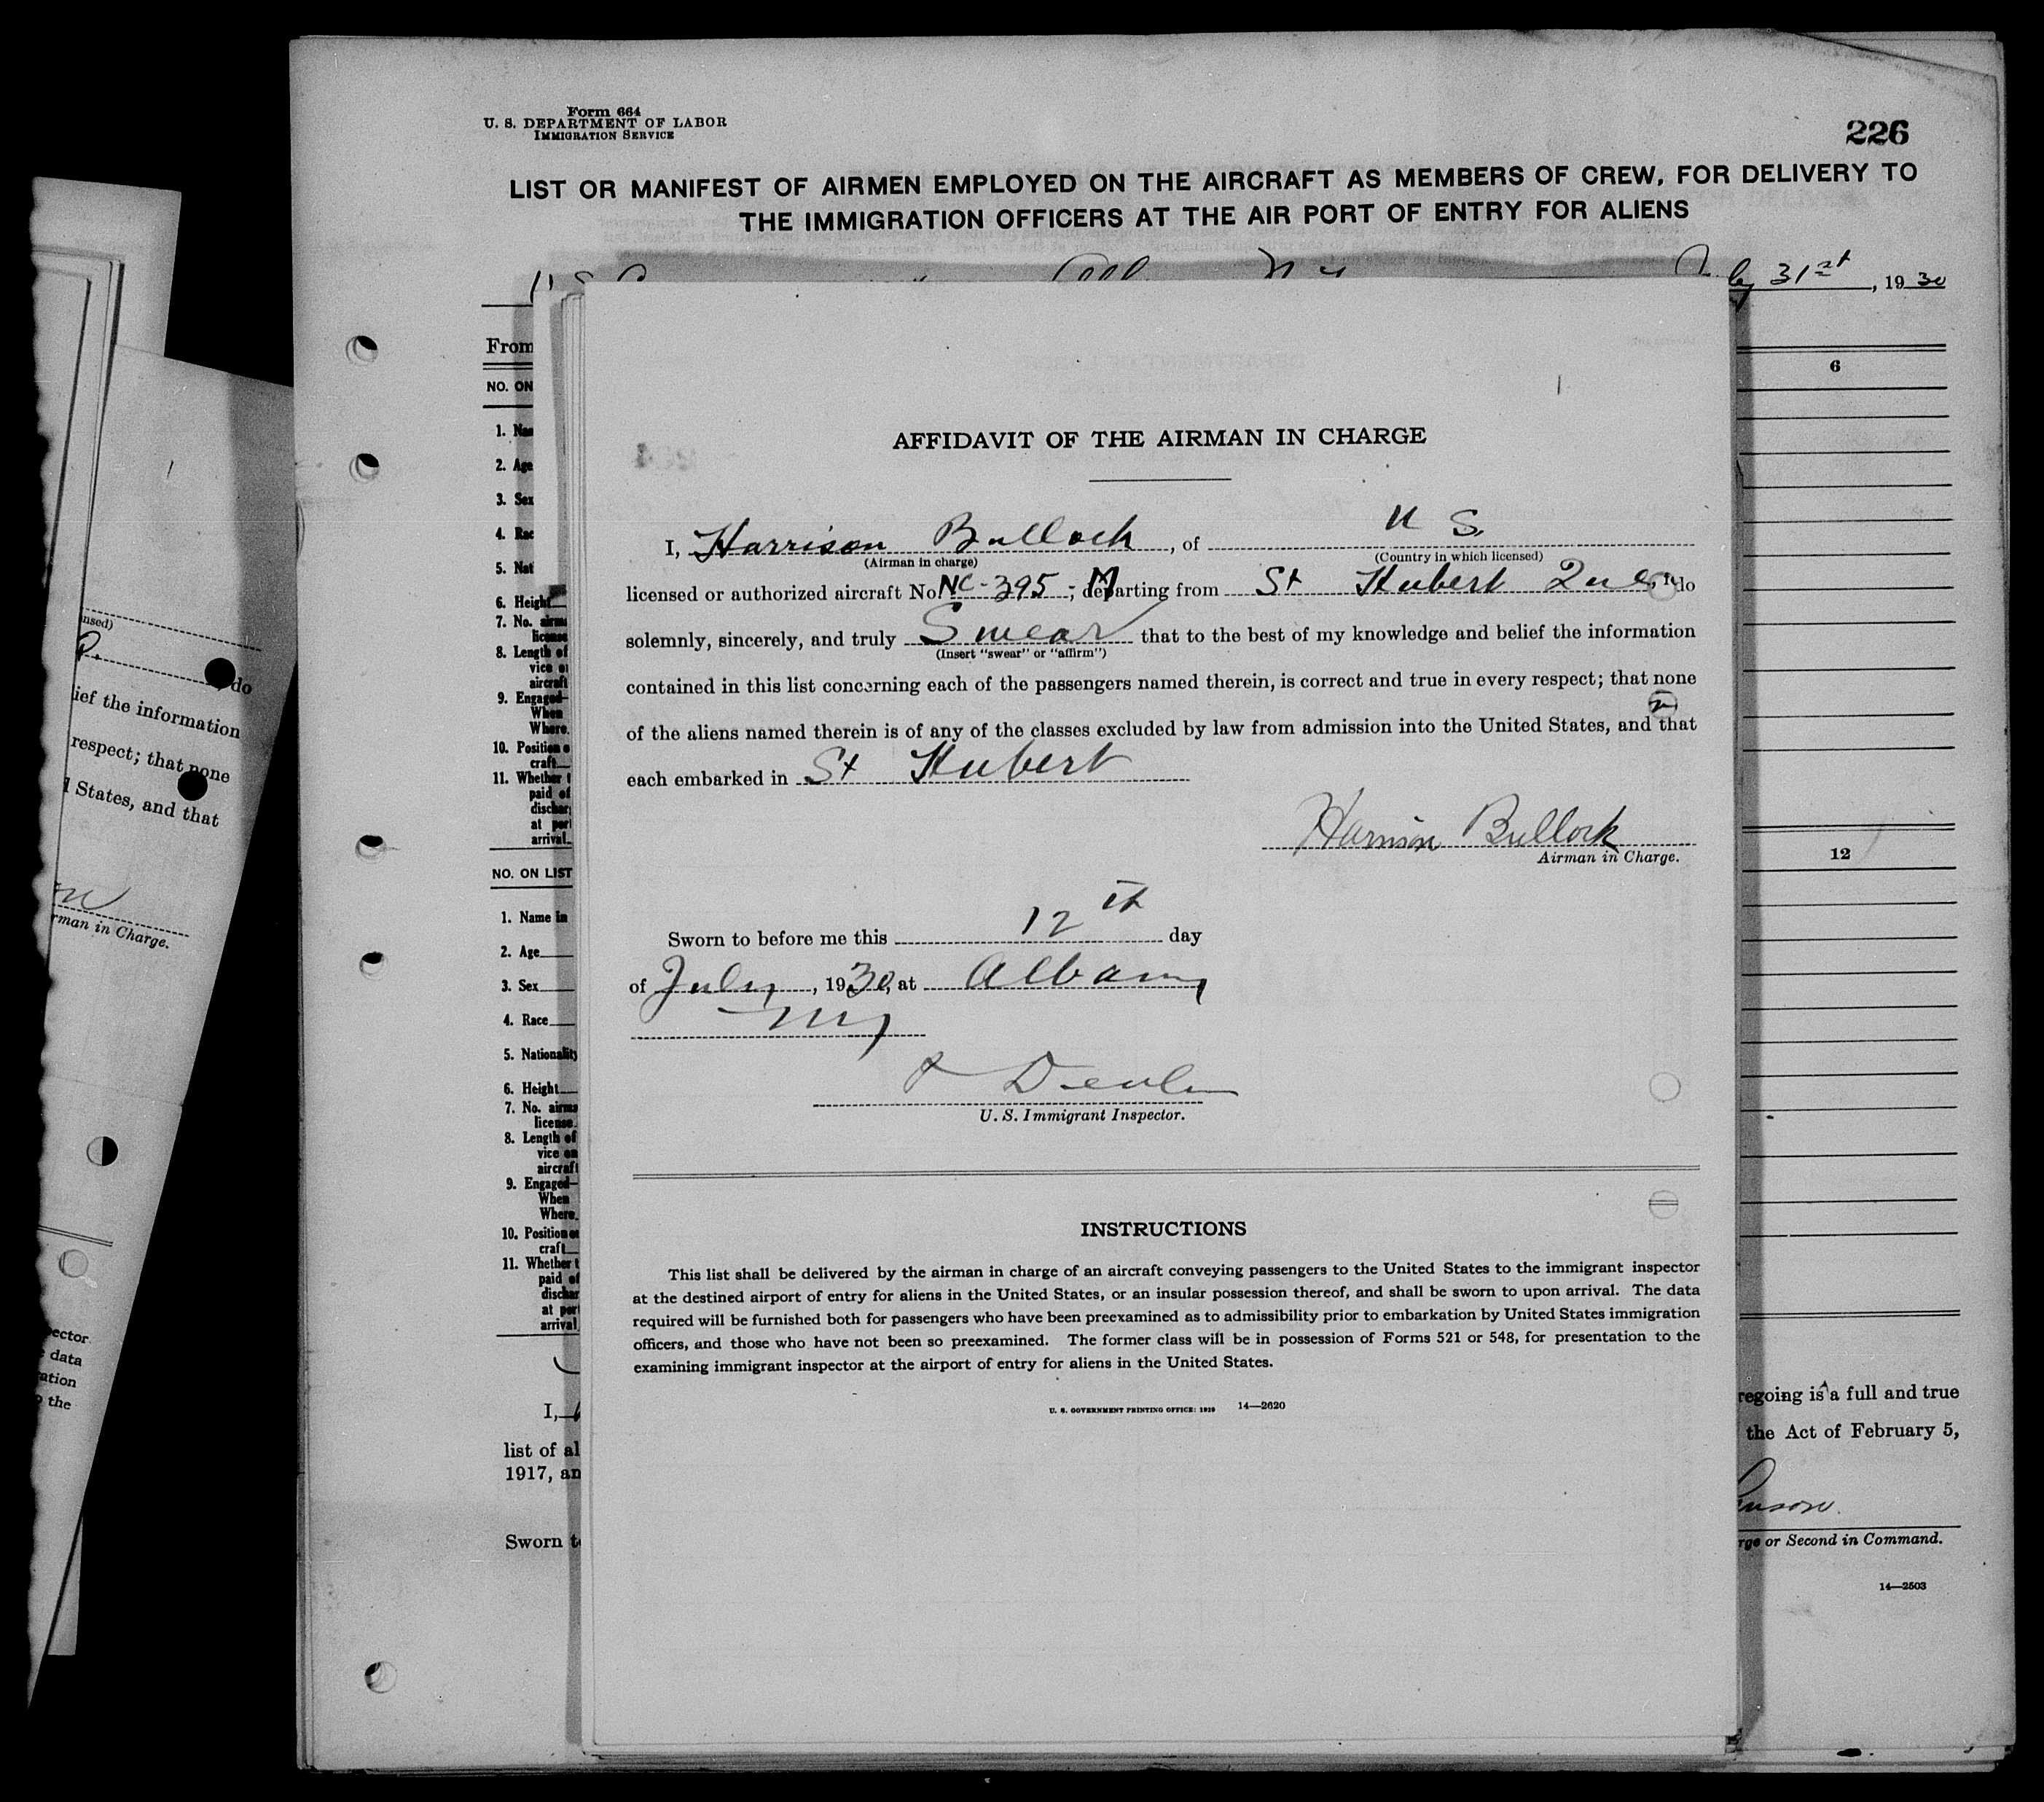 Form 664
U. S. DEPARTMENT OF LABOR
IMMIGRATION SERVICE
226
LIST OR MANIFEST OF AIRMEN EMPLOYED ON THE AIRCRAFT AS MEMBERS OF CREW, FOR DELIVERY TO
THE IMMIGRATION OFFICERS AT THE AIR PORT OF ENTRY FOR ALIENS
31st, 1930
From
NO. ON
6
1.
2. Age
3. Sex
4. Rac
5. Nat
6. Height
7. No. airma
license
8. Length of
vice o
aircraft
9. Engaged—
When
Where.
10. Position o
craft
11. Whether t
paid of
dischar
at port
arrival.
NO. ON LIST
12
1. Name in
2. Age
3. Sex
4. Race
5. Nationality
6. Height
7. No. airma
license.
8. Length of
vice on
aircraft
9. Engaged—
When
Where.
10. Position on
craft
11. Whether t
paid of
dischar
at port
arrival.
I,
list of al
1917, an
Sworn to
AFFIDAVIT OF THE AIRMAN IN CHARGE
I, Harrison Bullock, of U S.
(Airman in charge) (Country in which licensed)
licensed or authorized aircraft No NC-395-M; departing from St Hubert Que, do
solemnly, sincerely, and truly Swear that to the best of my knowledge and belief the information
(Insert "swear" or "affirm")
contained in this list concerning each of the passengers named therein, is correct and true in every respect; that none
of the aliens named therein is of any of the classes excluded by law from admission into the United States, and that
each embarked in St Hubert
Harrison Bullock
Airman in Charge.
Sworn to before me this 12th day
of July, 1930, at Albany
NY
U. S. Immigrant Inspector.
INSTRUCTIONS
This list shall be delivered by the airman in charge of an aircraft conveying passengers to the United States to the immigrant inspector
at the destined airport of entry for aliens in the United States, or an insular possession thereof, and shall be sworn to upon arrival. The data
required will be furnished both for passengers who have been preexamined as to admissibility prior to embarkation by United States immigration
officers, and those who have not been so preexamined. The former class will be in possession of Forms 521 or 548, for presentation to the
examining immigrant inspector at the airport of entry for aliens in the United States.
U. S. GOVERNMENT PRINTING OFFICE: 1929 14—2620
regoing is a full and true
the Act of February 5,
rge or Second in Command.
14—2503
nsed)
P.
, do
ief the information
respect; that none
d States, and that
rman in Charge.
pector
data
ation
o the